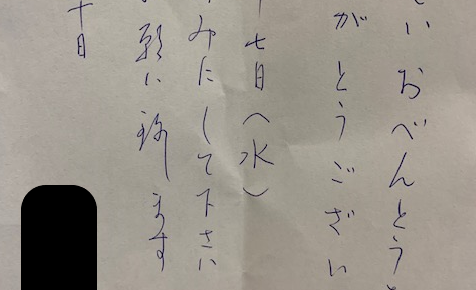 い おべんとう
がとうござい
七日(水)
みにして下さい
願い致します
十日